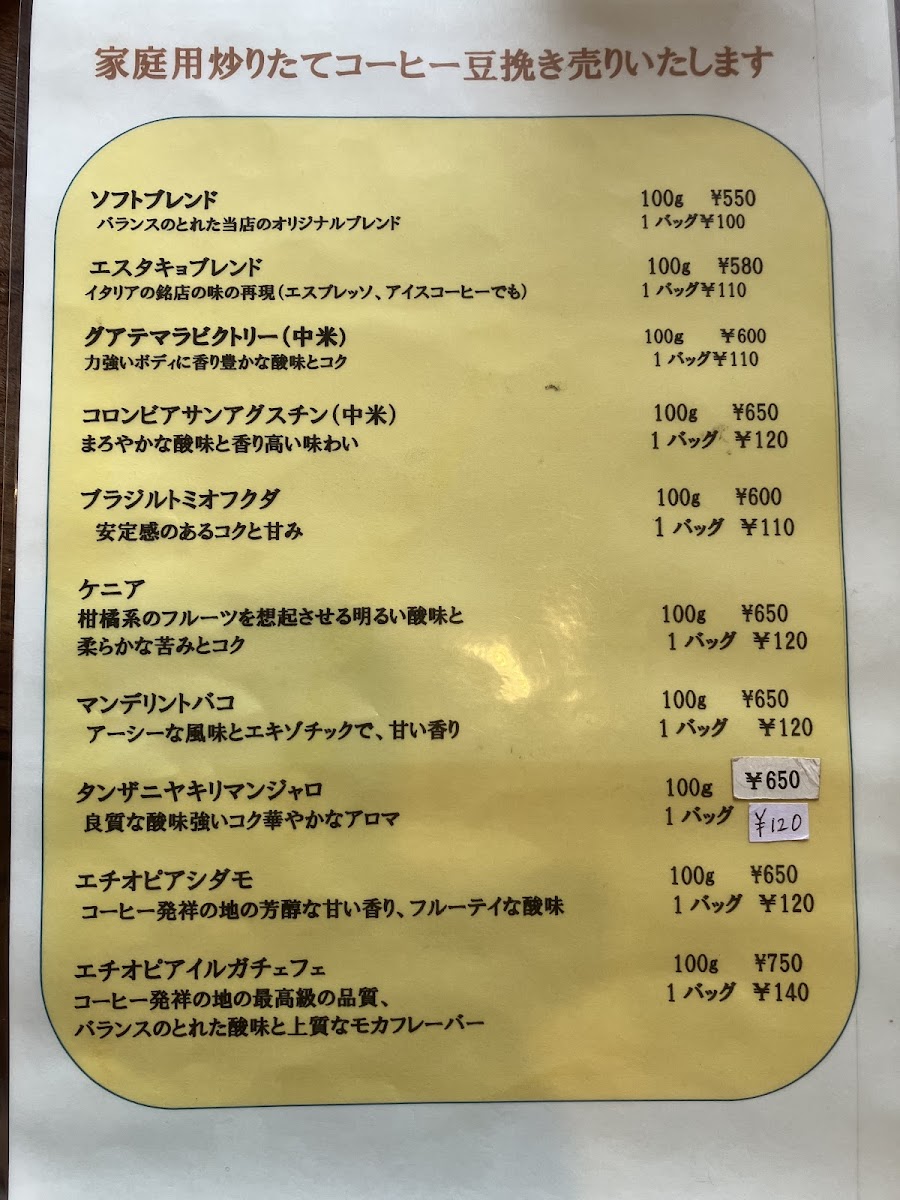 家庭用炒りたてコーヒー豆挽き売りいたします
ソフトブレンド 100g ¥550
バランスのとれた当店のオリジナルブレンド 1バッグ¥100
エスタキョブレンド 100g ¥580
イタリアの銘店の味の再現(エスプレッソ、アイスコーヒーでも) 1バッグ¥110
グアテマラビクトリー(中米) 100g ¥600
力強いボディに香り豊かな酸味とコク 1バッグ¥110
コロンビアサンアグスチン(中米) 100g ¥650
まろやかな酸味と香り高い味わい 1バッグ ¥120
ブラジルトミオフクダ 100g ¥600
安定感のあるコクと甘み 1バッグ ¥110
ケニア
柑橘系のフルーツを想起させる明るい酸味と 100g ¥650
柔らかな苦みとコク 1バッグ ¥120
マンデリントバコ 100g ¥650
アーシーな風味とエキゾチックで、甘い香り 1バッグ ¥120
タンザニヤキリマンジャロ 100g ¥650
良質な酸味強いコク華やかなアロマ 1バッグ ¥120
エチオピアシダモ 100g ¥650
コーヒー発祥の地の芳醇な甘い香り、フルーテイな酸味 1バッグ ¥120
エチオピアイルガチェフェ 100g ¥750
コーヒー発祥の地の最高級の品質、 1バッグ ¥140
バランスのとれた酸味と上質なモカフレーバー